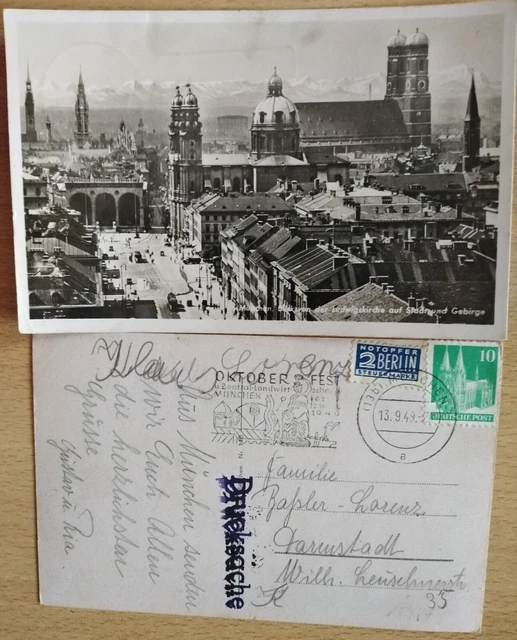 München. Blick von der Ludwigskirche auf Stadt und Gebirge
Aus München senden
wir Euch Allen
die herzlichsten
Grüsse
Gustav u. Pia
OKTOBERFEST
u. Zentral-Landwirtsch.
MÜNCHEN
NOTOPFER
2 BERLIN
STEUERMARKE
10
DEUTSCHE POST
13.9.49
a
Drucksache
Familie
Lorenz
Darmstadt
Wilh. Leuschnerstr.
35